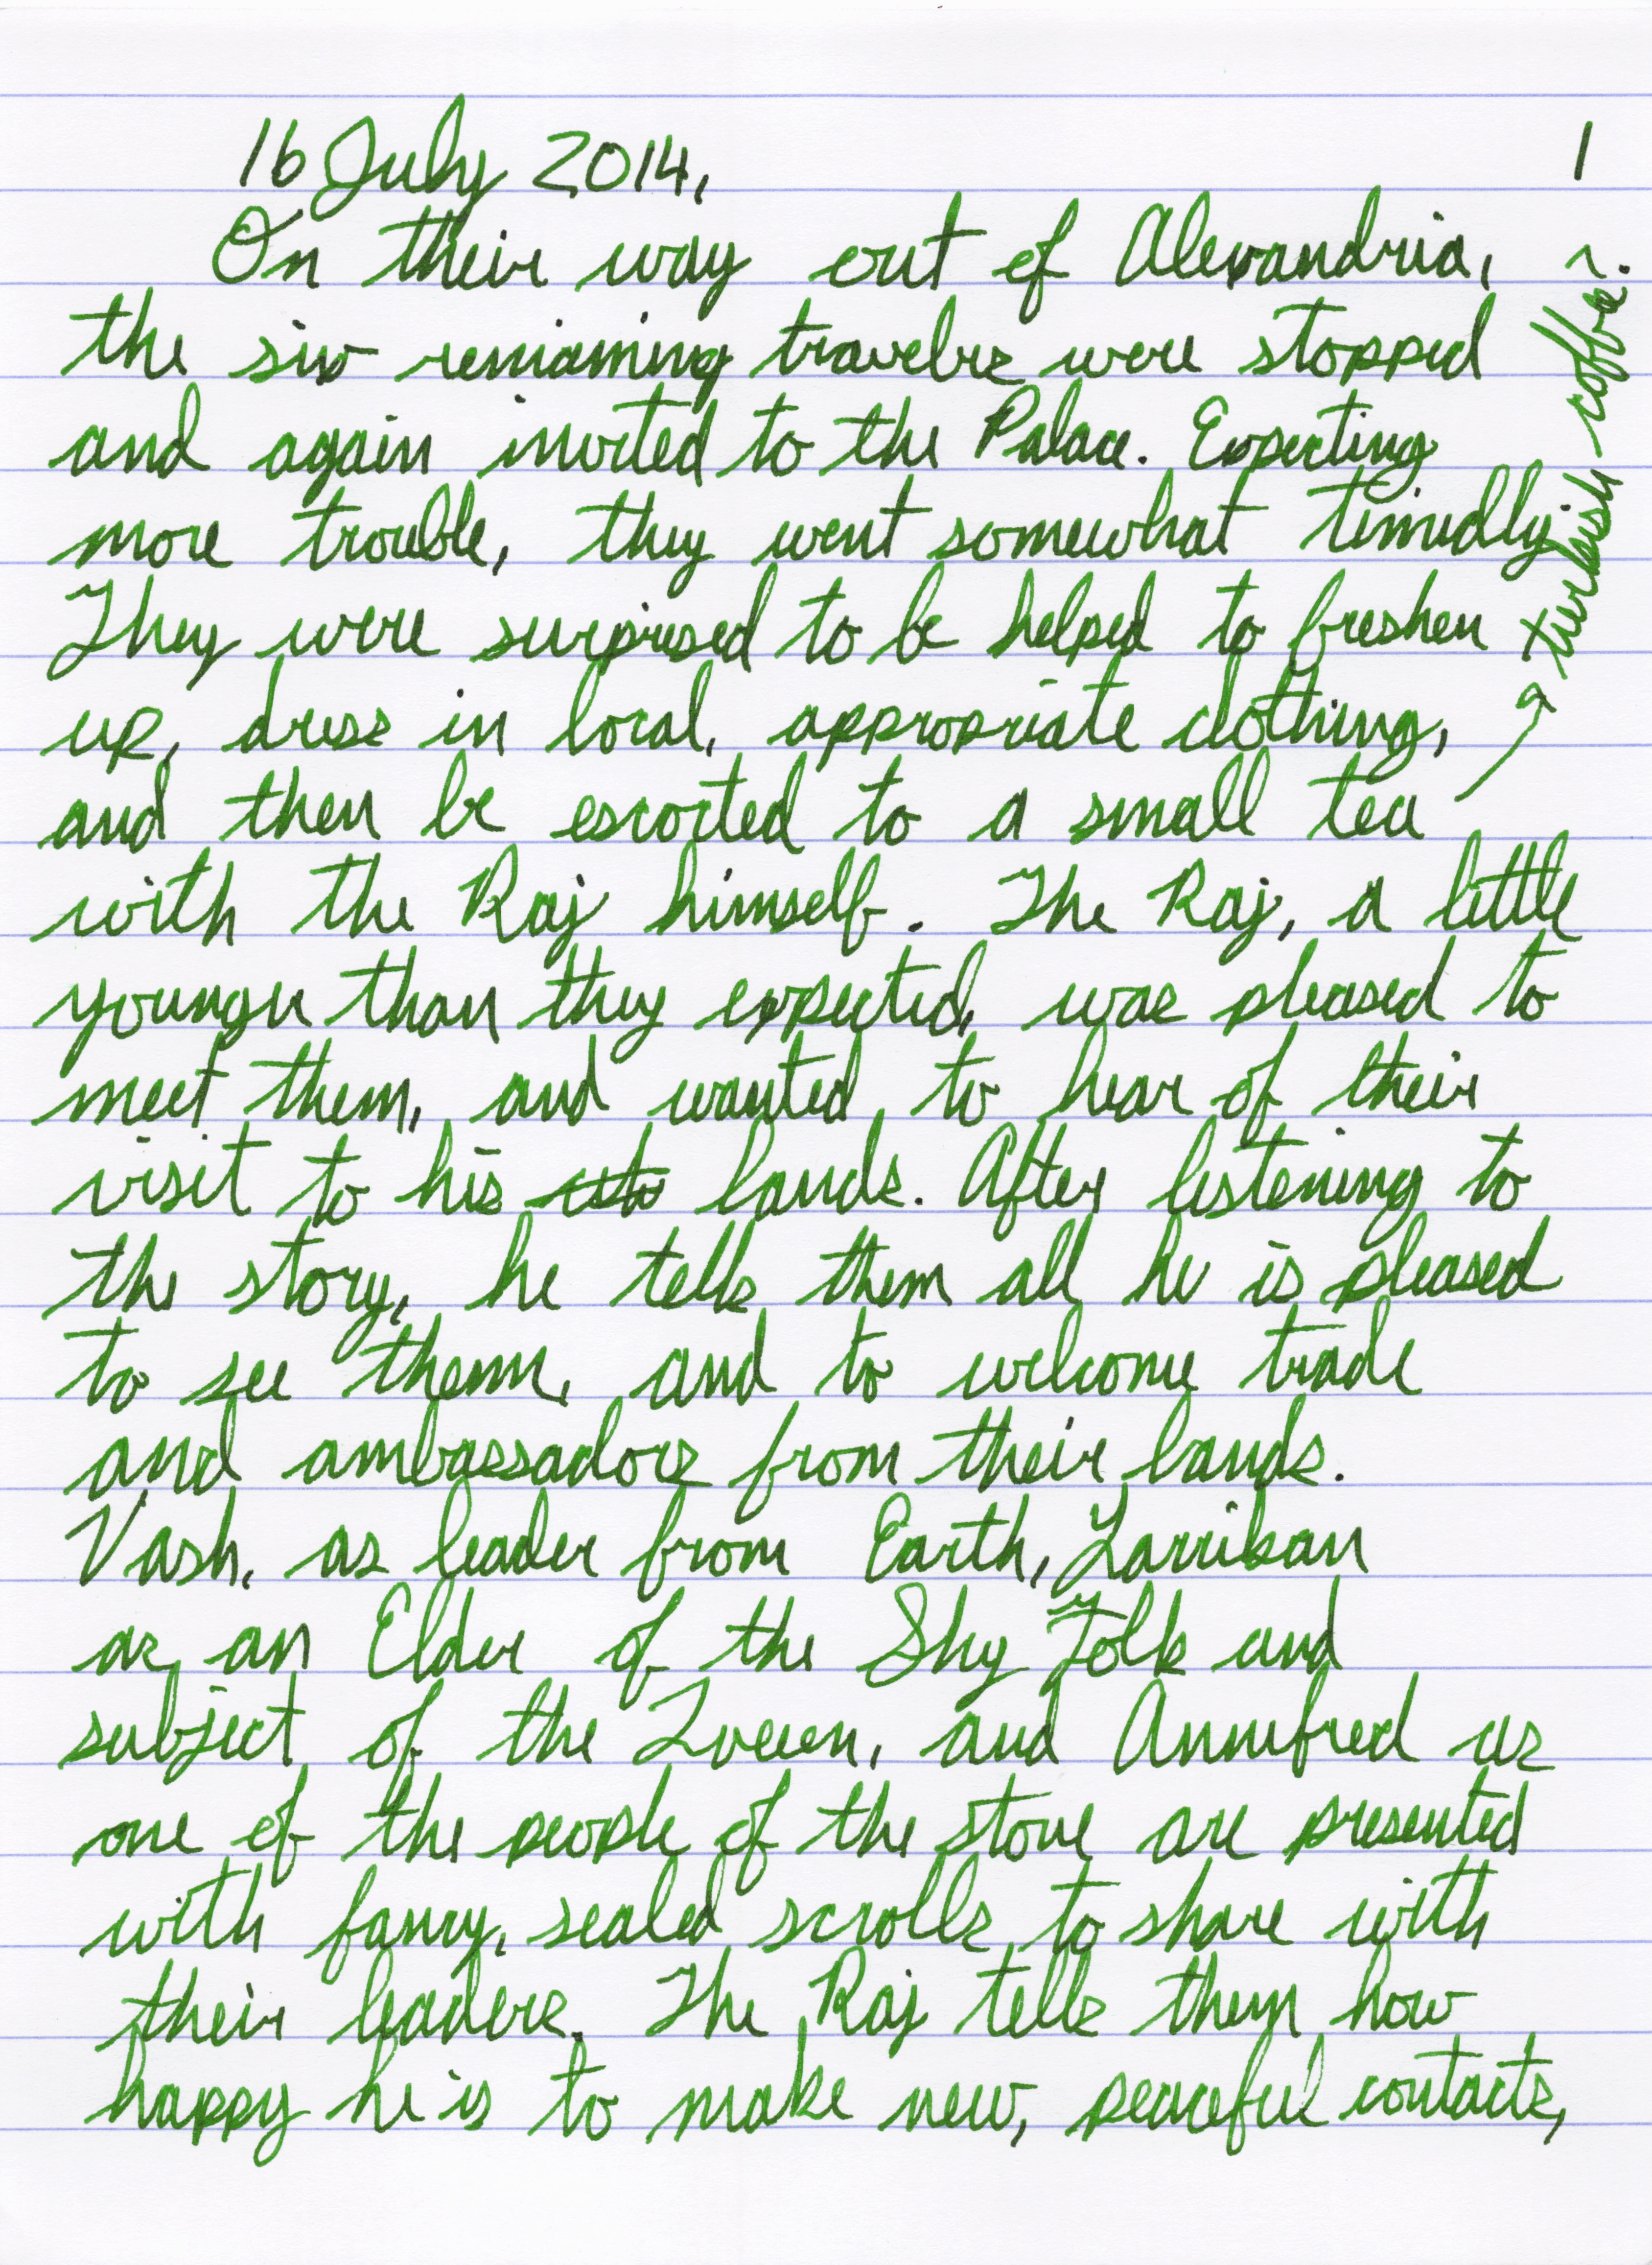 16 July 2014,
1
On their way out of Alexandria,
the six remaining travelers were stopped
and again invited to the Palace. Expecting
more trouble, they went somewhat timidly.
They were surprised to be helped to freshen
up, dress in local, appropriate clothing,
and then be escorted to a small tea
→ turkish coffee.
with the Raj himself. The Raj, a little
younger than they expected, was pleased to
meet them, and wanted to hear of their
visit to his lands. After listening to
the story, he tells them all he is pleased
to see them, and to welcome trade
and ambassadors from their lands.
Vash, as leader from Earth, Larrikan
as an Elder of the Shy Folk and
subject of the Queen, and Annefred as
one of the people of the stone are presented
with fancy, sealed scrolls to share with
their leaders. The Raj tells them how
happy he is to make new, peaceful contacts,